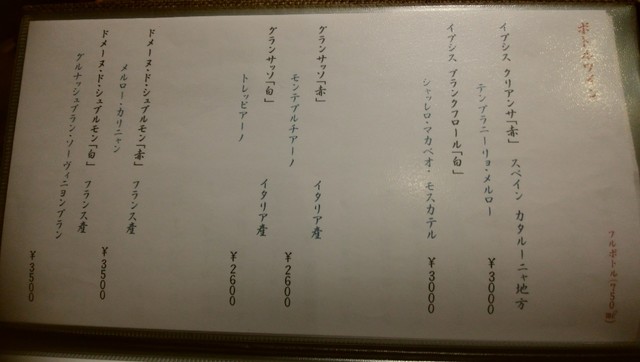 ボトルワイン
フルボトル(750ml)
イアシス クリアンサ「赤」 スペイン カタルーニャ地方
テンプラニーリョ・メルロー ￥3000
イアシス ブランクフロール「白」
シャッレロ・マカベオ・モスカテル ￥3000
グランサッソ「赤」 イタリア産
モンテプルチアーノ ￥2600
グランサッソ「白」 イタリア産
トレッビアーノ ￥2600
ドメーヌ・ド・シュブルモン「赤」 フランス産
メルロー・カリニャン ￥3500
ドメーヌ・ド・シュブルモン「白」 フランス産
グルナッシュブラン・ソーヴィニヨンブラン ￥3500